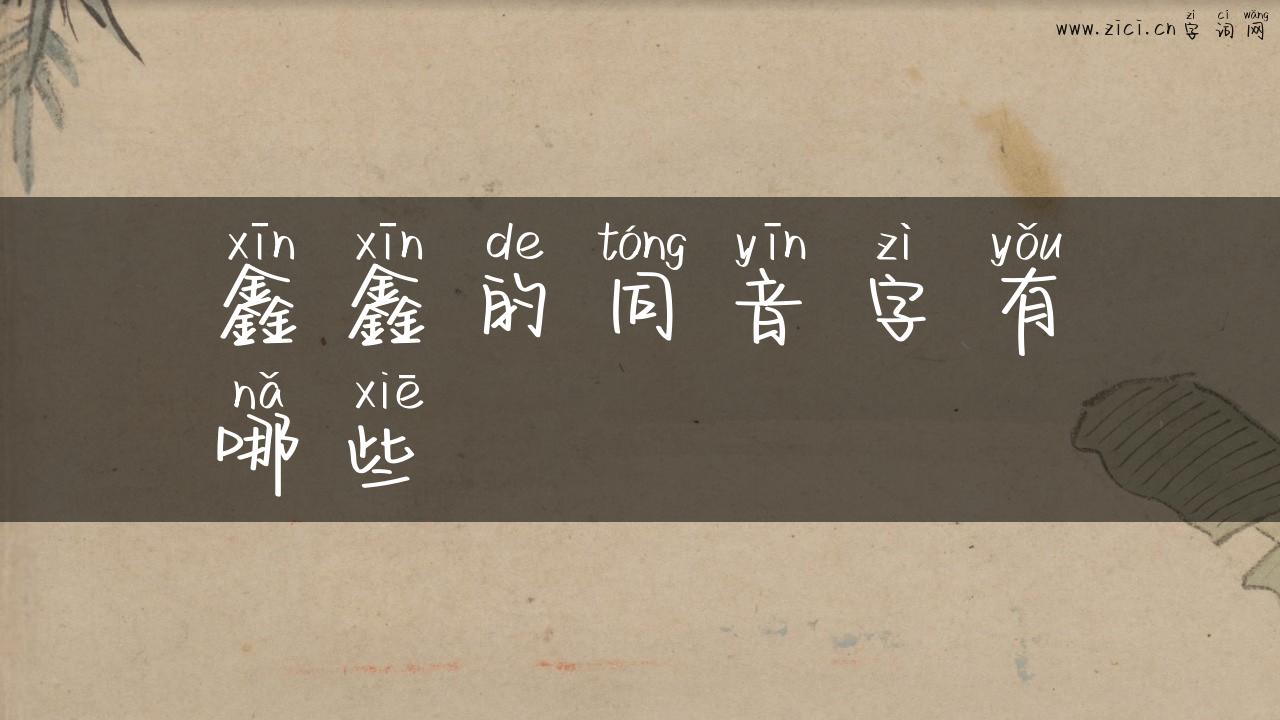 zì cí wǎng
www.zici.cn 字 词 网
xīn xīn de tóng yīn zì yǒu
鑫 鑫 的 同 音 字 有
nǎ xiē
哪 些